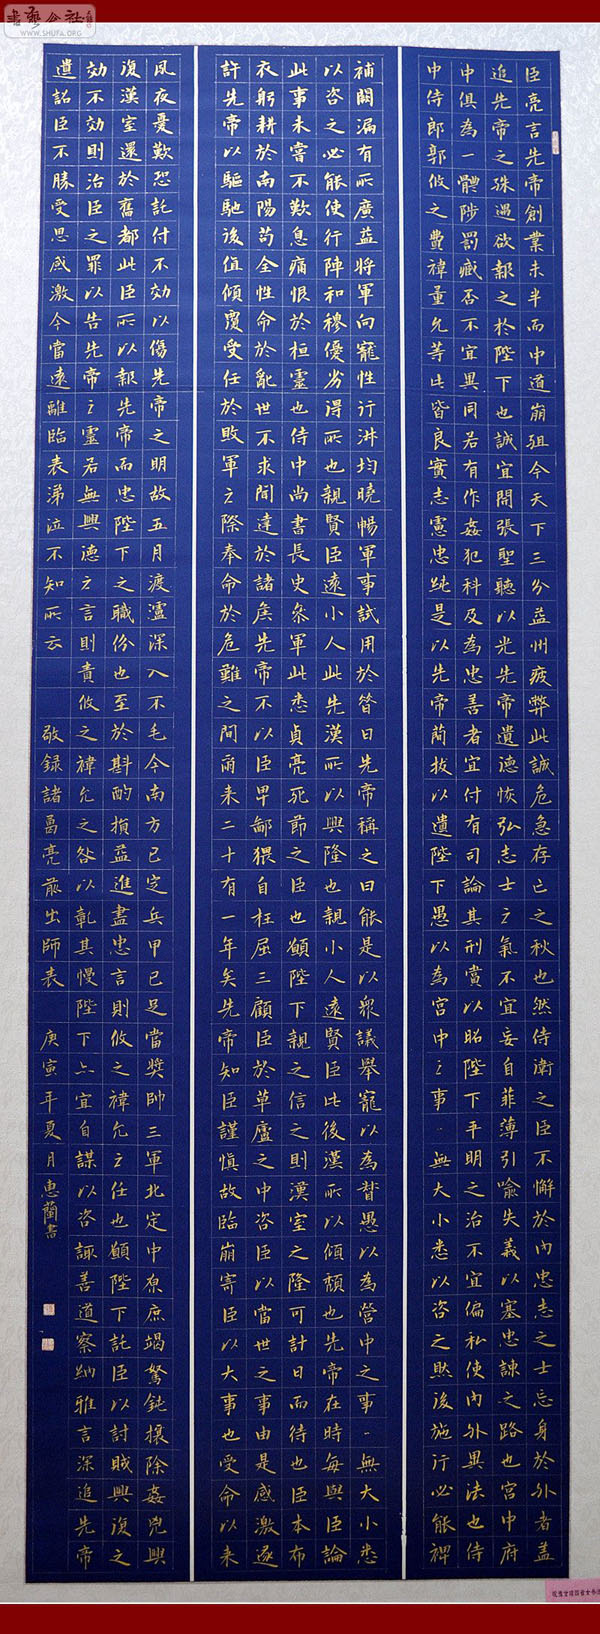 臣亮言先帝創業未半而中道崩殂今天下三分益州疲弊此誠危急存亡之秋也然侍衛之臣不懈於內忠志之士忘身於外者蓋
追先帝之殊遇欲報之於陛下也誠宜開張聖聽以光先帝遺德恢弘志士之氣不宜妄自菲薄引喻失義以塞忠諫之路也宮中府
中俱為一體陟罰臧否不宜異同若有作姦犯科及為忠善者宜付有司論其刑賞以昭陛下平明之治不宜偏私使內外異法也侍
中侍郎郭攸之費禕董允等此皆良實志慮忠純是以先帝簡拔以遺陛下愚以為宮中之事一無大小悉以咨之然後施行必能裨
補闕漏有所廣益將軍向寵性行淑均曉暢軍事試用於昔日先帝稱之曰能是以眾議舉寵以為督愚以為營中之事一無大小悉
以咨之必能使行陣和穆優劣得所也親賢臣遠小人此先漢所以興隆也親小人遠賢臣此後漢所以傾頹也先帝在時每與臣論
此事未嘗不歎息痛恨於桓靈也侍中尚書長史參軍此悉貞亮死節之臣也願陛下親之信之則漢室之隆可計日而待也臣本布
衣躬耕於南陽苟全性命於亂世不求聞達於諸侯先帝不以臣卑鄙猥自枉屈三顧臣於草廬之中咨臣以當世之事由是感激遂
許先帝以驅馳後值傾覆受任於敗軍之際奉命於危難之間爾來二十有一年矣先帝知臣謹慎故臨崩寄臣以大事也受命以來
夙夜憂歎恐託付不効以傷先帝之明故五月渡瀘深入不毛今南方已定兵甲已足當獎帥三軍北定中原庶竭駑鈍攘除姦兇興
復漢室還於舊都此臣所以報先帝而忠陛下之職份也至於斟酌損益進盡忠言則攸之禕允之任也願陛下託臣以討賊興復之
効不効則治臣之罪以告先帝之靈若無興德之言則責攸之禕允之咎以彰其慢陛下亦宜自謀以咨諏善道察納雅言深追先帝
遺詔臣不勝受恩感激今當遠離臨表涕泣不知所云 敬錄諸葛亮前出師表 庚寅年夏月惠蘭書
WWW.SHUFA.ORG